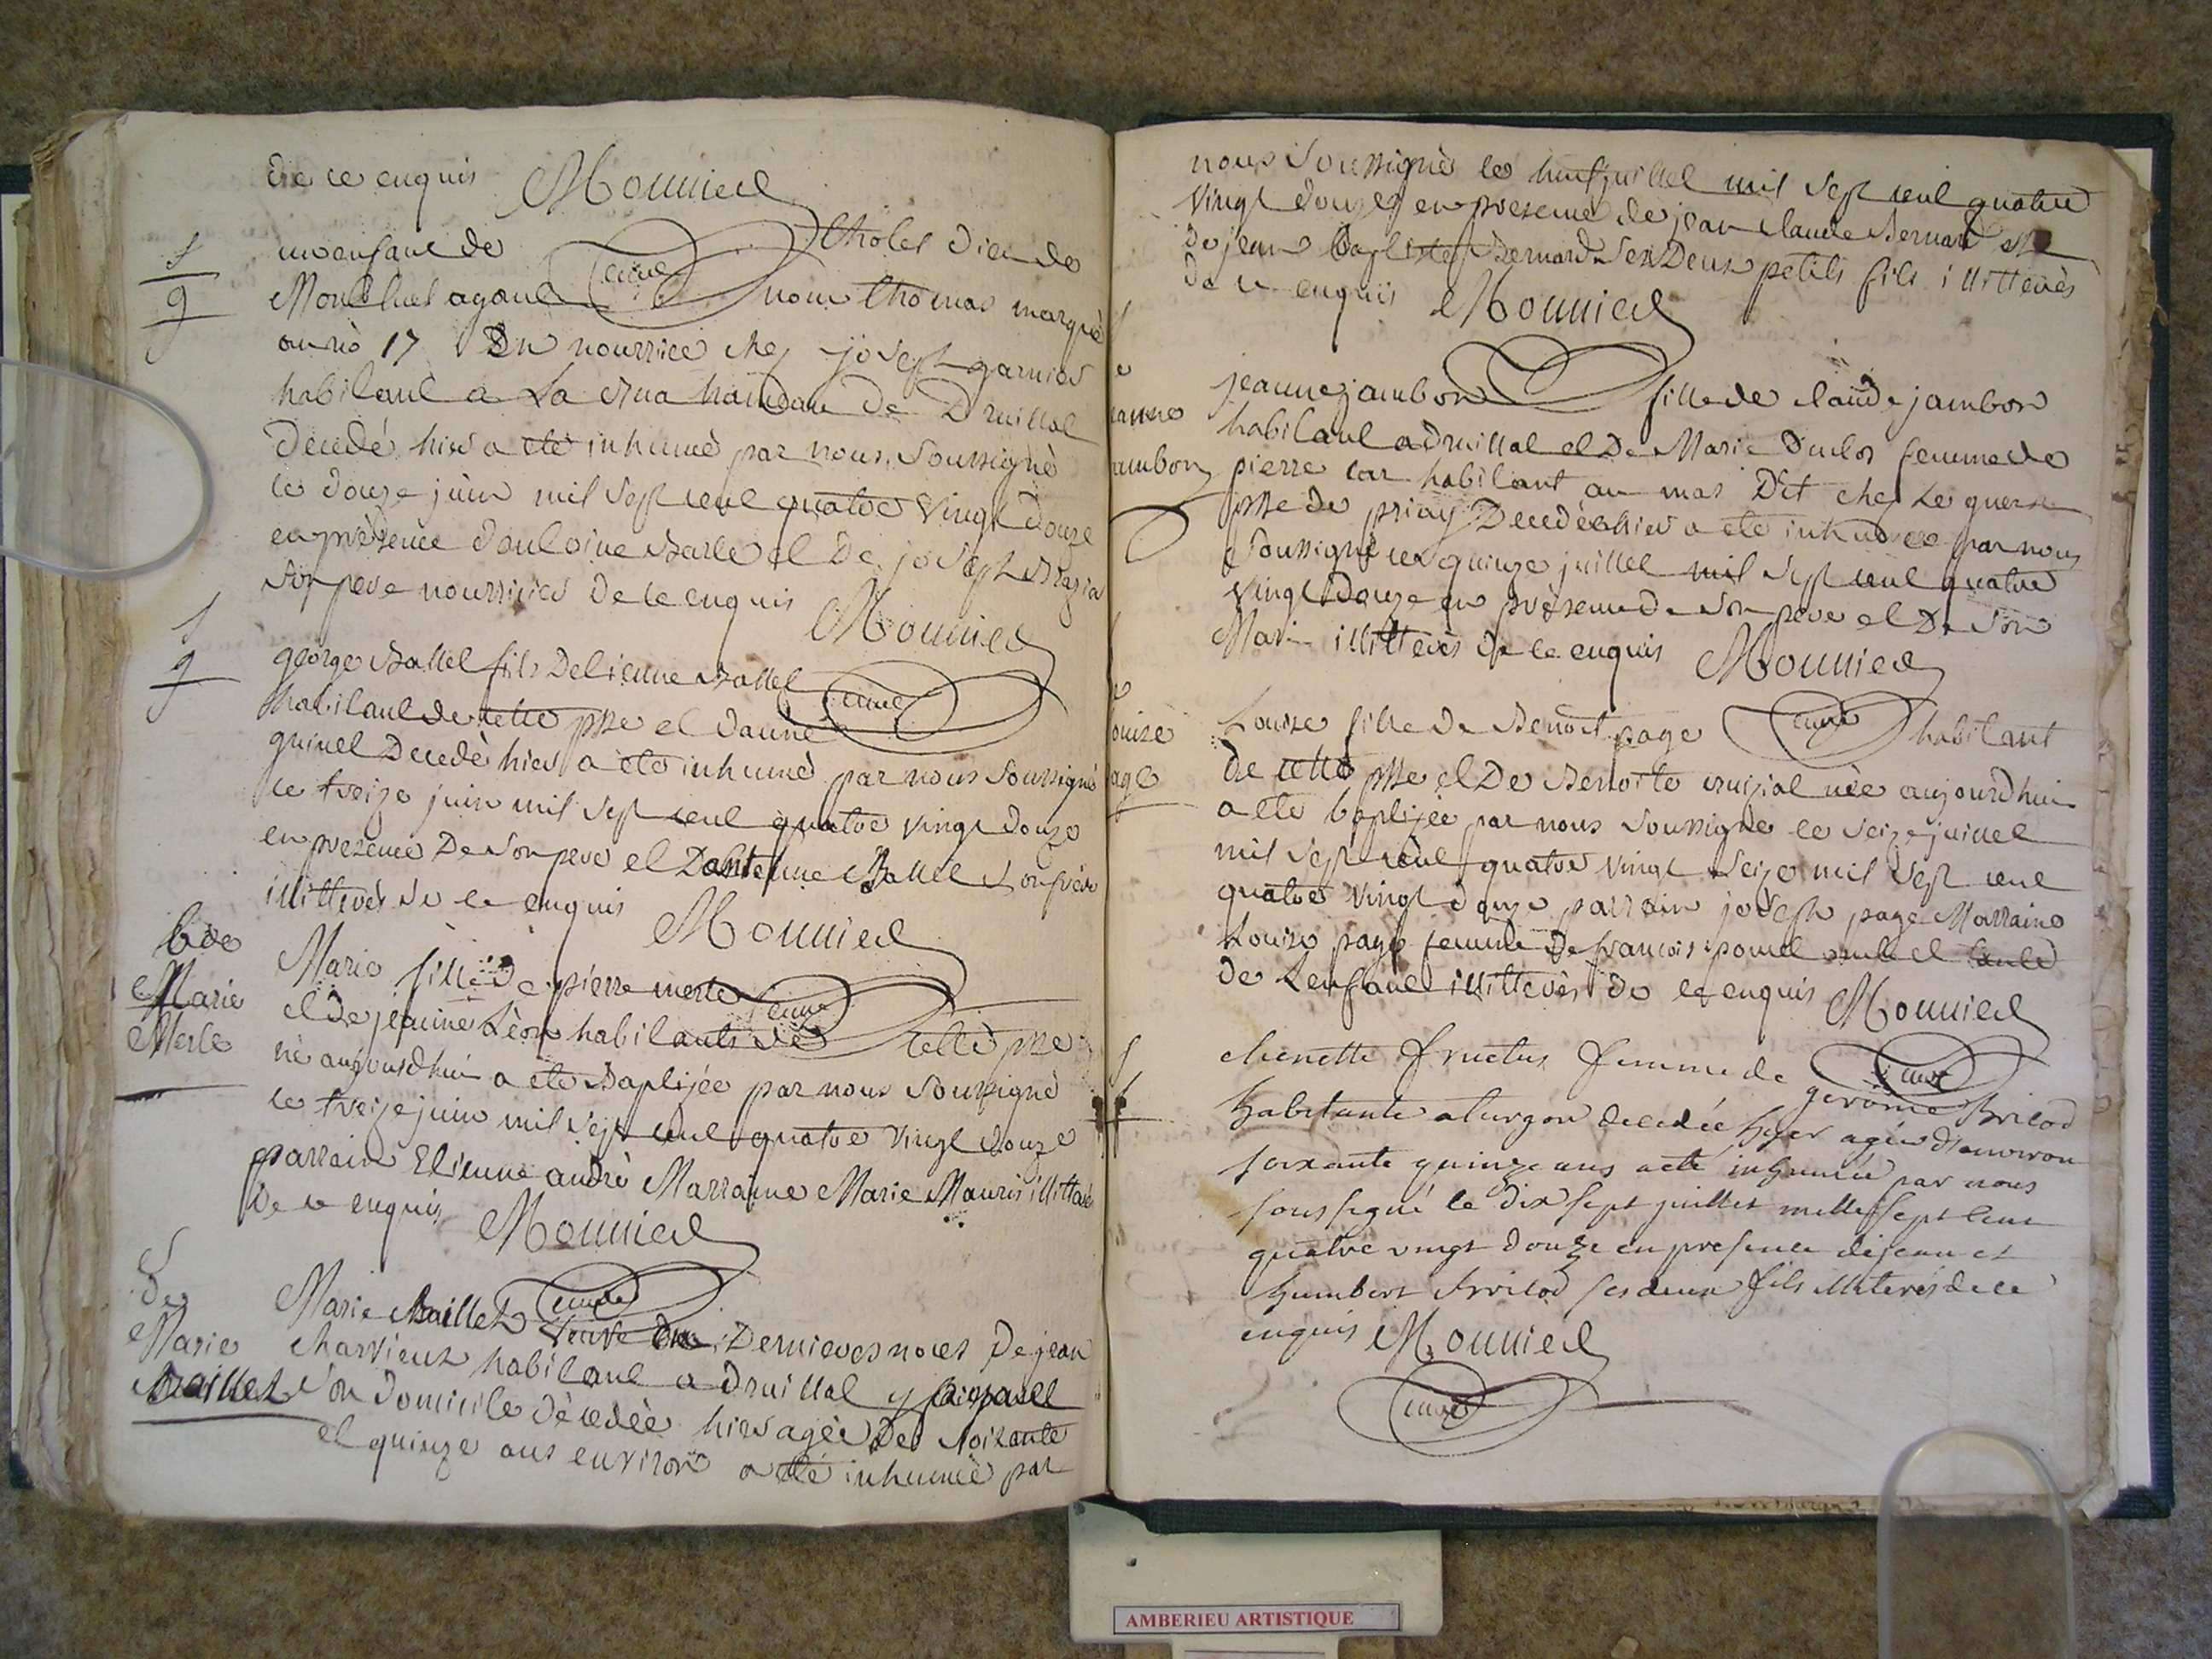 de ce enquis Mounier
un enfant de curé lhotel dieu de
Monthuel ayant nom thomas marqué
au no 17 En nourrice chez joseph garnier
habitant a La Rua hameau de Druillat
Decedé hier a eté inhumé par nous Soussigné
le douze juin mil Sept cent quatre Vingt Douze
en présence dantoine et De joseph
Son pere nourricier De ce enquis Mounier
george Ballet fils Detienne Ballet curé
habitant de cette psse et danne
guinet Decedé hier a eté inhumé par nous Soussigné
le treize juin mil Sept cent quatre vingt douze
en presence De Son pere et Dantoine Ballet Son frere
illitterés de ce enquis Mounier
bde
Marie
Merle
Marie fille De pierre merle curé
et de jeanne Léon habitants de cette psse
né aujourdhui a eté Baptizée par nous Soussigné
le treize juin mil Sept cent quatre Vingt douze
parrain Etienne andré Marraine Marie Mauris illitterés
De ce enquis Mounier
S
De
Marie
Baillet
Marie Baillet curé Veuve En Dernieres noces De jean
Charvieux habitant a Druillat y
Son Domicile décedée hier agée De Soixante
et quinze ans environ a eté inhumée par
nous Soussigné le huit juillet mil Sept cent quatre
Vingt douze en presence de jean claude Bernard et
De jean baptiste Bernard Ses Deux petits fils illitterés
De ce enquis Mounier
jeanne jambon fille de claude jambon
habitant a Druillat et De Marie Duclos femme de
ambon pierre car habitant au mas Dit chez Le guerre
psse de priay Decedée hier a eté inhumée par nous
Soussigné ce quinze juillet mil Sept cent quatre
Vingt Douze en présence De Son pere et De Son
Mari illitterés De ce enquis Mounier
ouise
age
Louise fille De Benoit page curé habitant
De cette psse et De Benoite née aujourdhui
a eté baptizée par nous Soussigné ce Seize juillet
mil Sept cent quatre vingt Seize mil Sept cent
quatre Vingt douze parrain joseph page Marraine
Louise page femme De francois et tante
de Lenfant illitterés De ce enquis Mounier
chenette fructus femme de curé gerome Brilod
habitante a turgon decedée hyer agée d'environ
soixante quinze ans a eté inhumée par nous
soussigné le dix sept juillet mille sept cent
quatre vingt douze en presence de jean et
humbert Brilod ses deux fils illiterés de ce
enquis Mounier
curé
AMBERIEU ARTISTIQUE